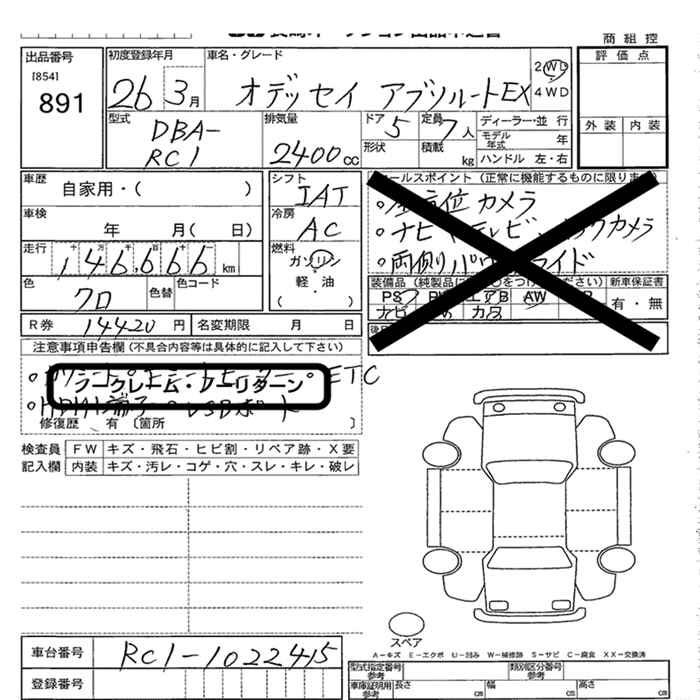 商組控
出品番号
[854]
891
初度登録年月
26 3月
車名・グレード
オデッセイ アブソルートEX
2WD
4WD
評価点
外装 内装
型式
DBA-
RC1
排気量
2400cc
ドア 5
形状
定員 7人
積載 kg
ディーラー・並行
モデル年式 年
ハンドル 左・右
車歴
自家用・( )
シフト
IAT
車検
年 月( 日)
冷房
AC
走行
十 万 千 百 十
146,666 km
燃料
ガソリン
軽・油
( )
色
クロ
色替
色コード
R券 14420 円
名変期限 月 日
セールスポイント (正常に機能するものに限ります)
カメラ
装備品
新車保証書
有・無
注意事項申告欄 (不具合内容等は具体的に記入して下さい)
ノークレーム・ノーリターン
ETC
HDMI端子 USBポート
修復歴 有 〔箇所 〕
検査員 FW キズ・飛石・ヒビ割・リペア跡・X要
記入欄 内装 キズ・汚レ・コゲ・穴・スレ・キレ・破レ
スペア
A-キズ E-エクボ U-凹み W-補修跡 S-サビ C-腐食 XX-交換済
車台番号 RC1-1022415
登録番号
型式指定番号 参考
類別区分番号 参考
車庫証明用 参考
長さ cm 幅 cm 高さ cm